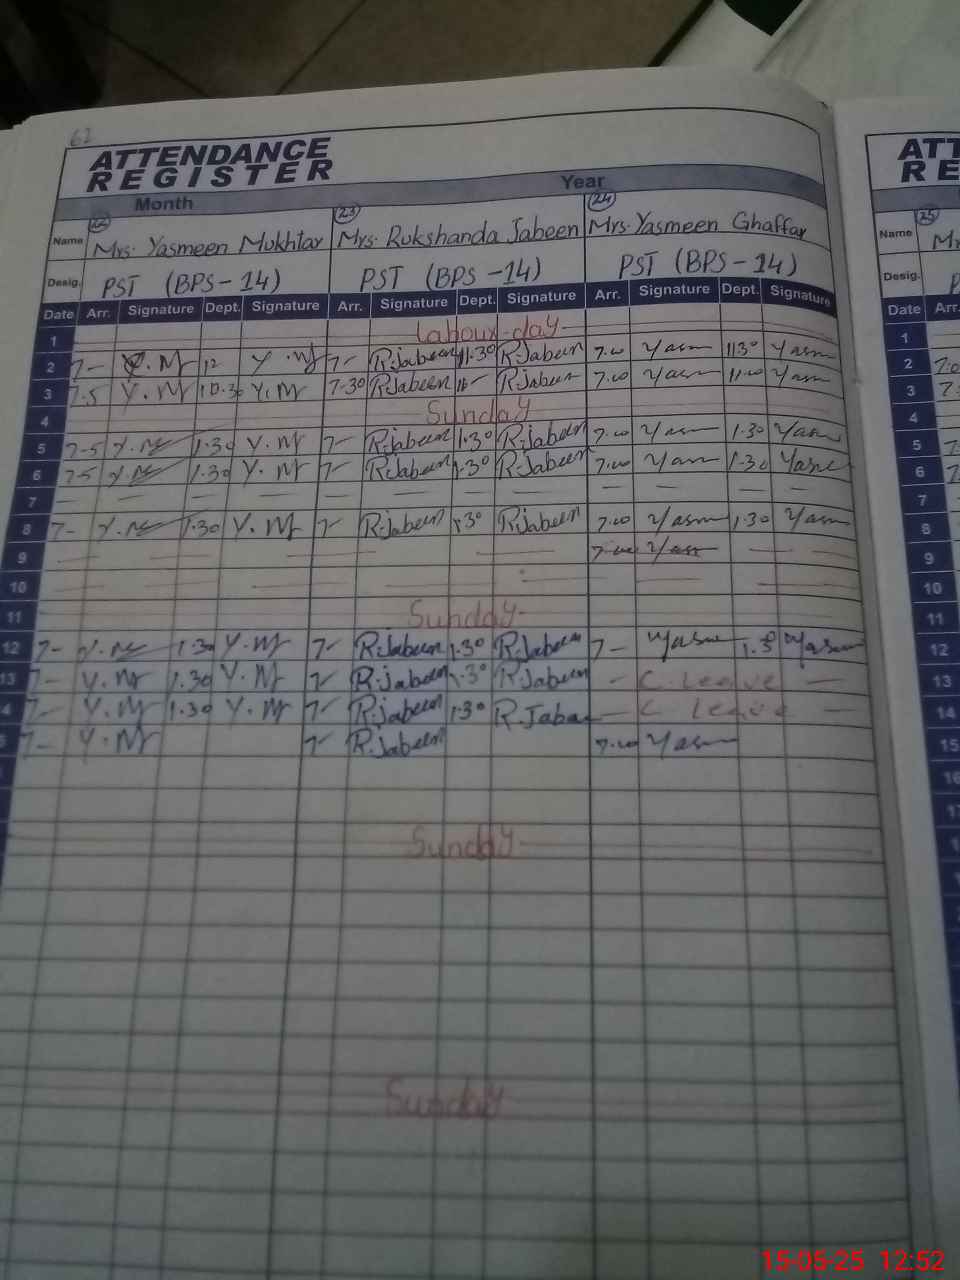 62
ATTENDANCE ATT
REGISTER RE
Month Year
22 23 24 25
Name Mrs. Yasmeen Mukhtar Mrs. Rukshanda Jabeen Mrs. Yasmeen Ghaffar Name
Desig. PST (BPS-14) PST (BPS-14) PST (BPS-14) Desig.
Date Arr. Signature Dept. Signature Arr. Signature Dept. Signature Arr. Signature Dept. Signature Date Arr.
1 Labour day 1
2 7- Y.M 12 Y.M 7- R.Jabeen 11.30 R.Jabeen 7.00 Yasm 1130 Yasm 2
3 7.5 Y.M 10.30 Y.M 7-30 R.Jabeen R.Jabeen 7.00 Yasm 11.00 Yasm 3
4 Sunday
5 7-5 Y.M 1.30 Y.M 7- R.Jabeen 1.30 R.Jabeen 7.00 Yasm 1.30 Yasm 5
6 7-5 Y.M 1.30 Y.M 7- R.Jabeen 1.30 R.Jabeen 7.00 Yasm 1.30 Yasm 6
7 — — — — — — — — — — — — 7
8 7- Y.M 1.30 Y.M 7- R.Jabeen 1.30 R.Jabeen 7.00 Yasm 1.30 Yasm 8
9 — — — — 7.00 Yasm — — 9
10 — — — — — — 10
11 Sunday 11
12 7- Y.M 1.30 Y.M 7- R.Jabeen 1.30 R.Jabeen 7- Yasm 1.30 Yasm 12
13 7- Y.M 1.30 Y.M 7- R.Jabeen 1.30 R.Jabeen - C. Leave — 13
4 7- Y.M 1.30 Y.M 7- R.Jabeen 1.30 R.Jabeen — C Leave — 14
7- Y.M 7- R.Jabeen 7.00 Yasm 15
16
Sunday
Sunday
15-05-25 12:52